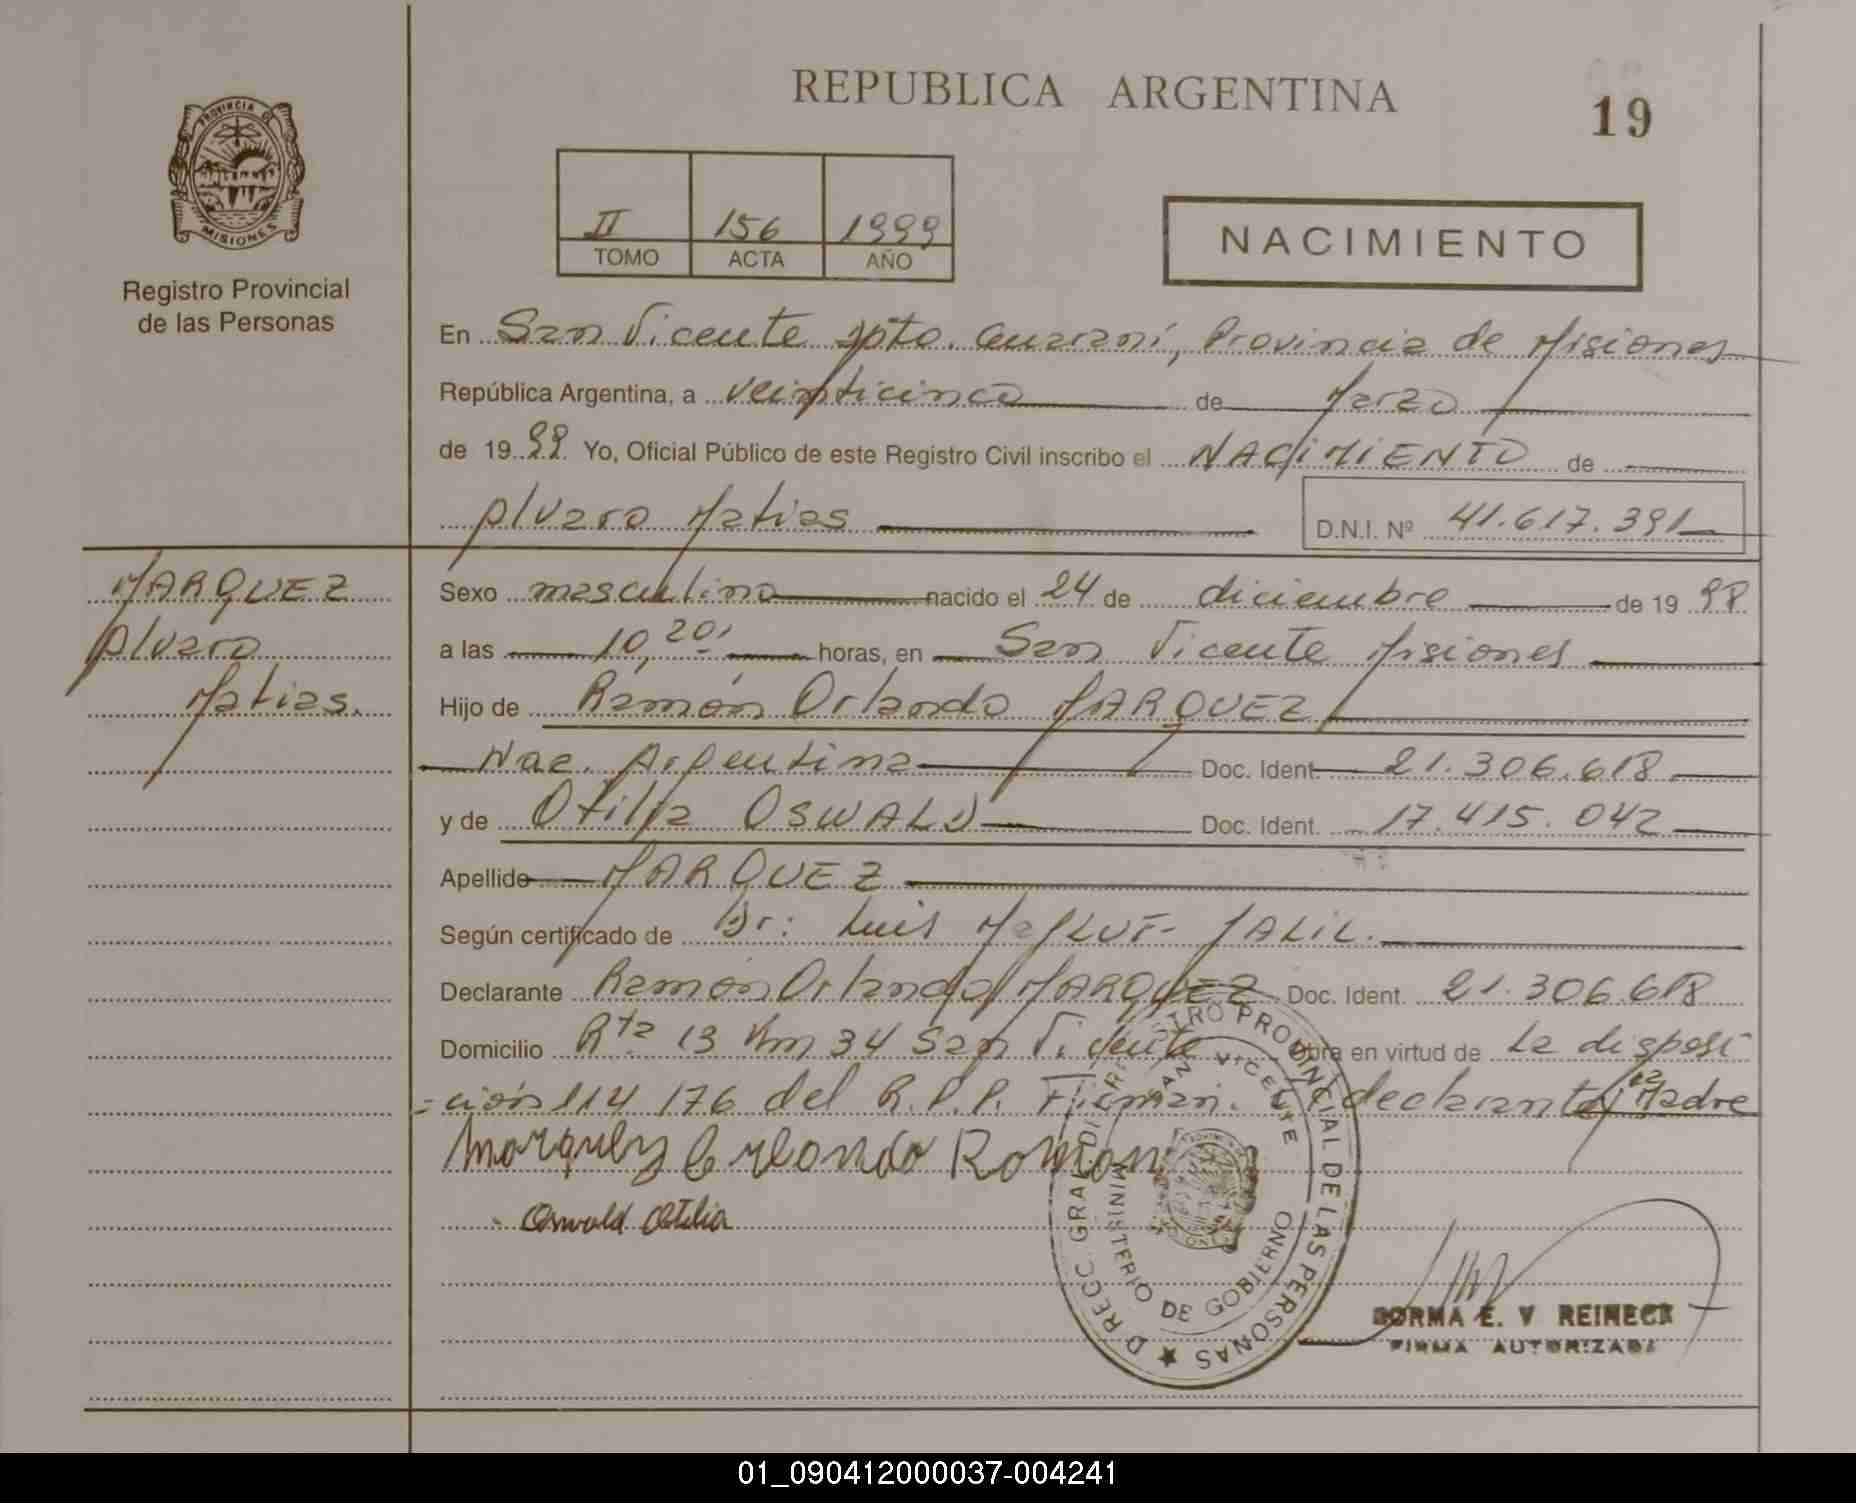 REPUBLICA ARGENTINA
19
PROVINCIA DE
MISIONES
Registro Provincial
de las Personas
II 156 1999
TOMO ACTA AÑO
NACIMIENTO
En San Vicente Dpto. Guaraní, Provincia de Misiones
República Argentina, a veinticinco de Marzo
de 1999 Yo, Oficial Público de este Registro Civil inscribo el NACIMIENTO de
Alvaro Matias D.N.I. Nº 41.617.391
MARQUEZ
Alvaro
Matias.
Sexo masculino nacido el 24 de diciembre de 1998
a las 10,20' horas, en San Vicente Misiones
Hijo de Ramón Orlando MARQUEZ
Nac. Argentina Doc. Ident 21.306.618
y de Otilia OSWALD Doc. Ident. 17.415.042
Apellido MARQUEZ
Según certificado de Dr: Luis JALIL.
Declarante Ramón Orlando MARQUEZ Doc. Ident. 21.306.618
Domicilio Rta 13 Km 34 San Vicente Obra en virtud de La disposi
=ción 114 176 del R.P.P. Firman. El declarante y la Madre
Marquez Orlando Roman
Oswald Otilia
DIRECC. GRAL. DEL REGISTRO PROVINCIAL DE LAS PERSONAS
SAN VICENTE
MINISTERIO DE GOBIERNO
NORMA E. V REINECK
FIRMA AUTORIZADA
01_090412000037-004241